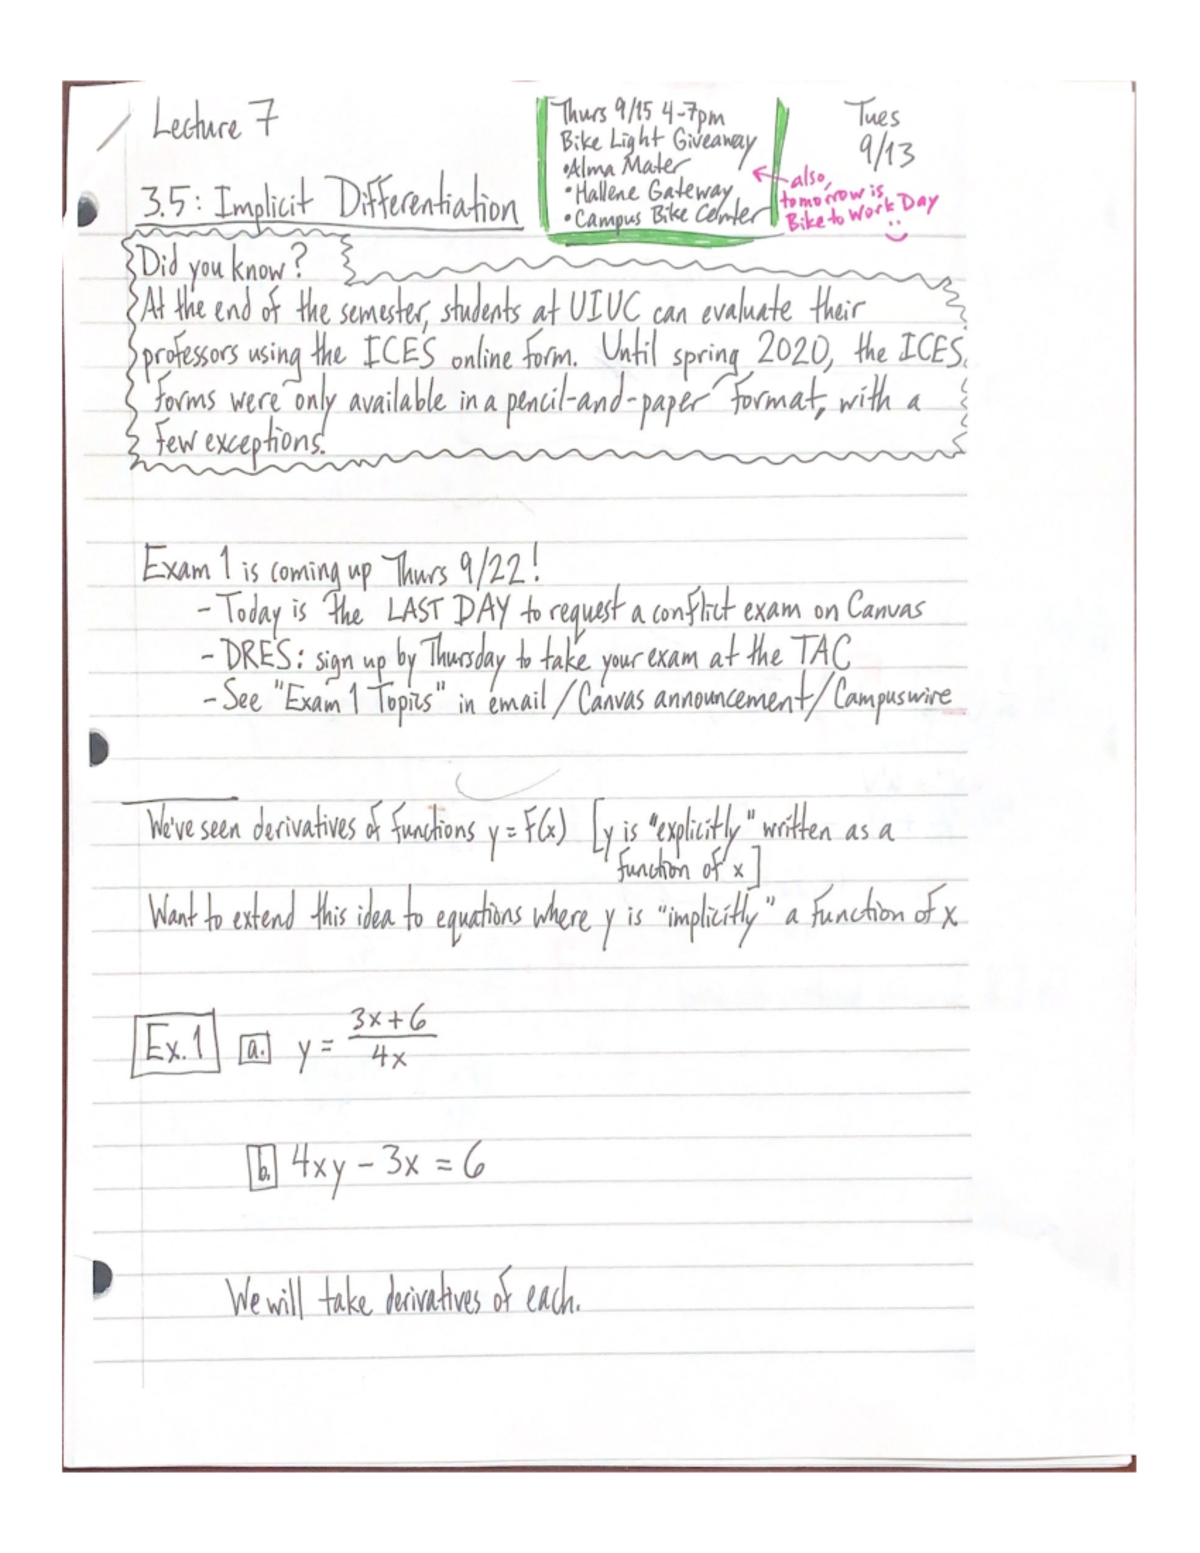 Lecture 7
Thurs 9/15 4-7pm
Bike Light Giveaway
•Alma Mater
•Hallene Gateway
•Campus Bike Center
also,
tomorrow is
Bike to Work Day
Tues
9/13
3.5: Implicit Differentiation
Did you know?
At the end of the semester, students at UIUC can evaluate their
professors using the ICES online form. Until spring 2020, the ICES
forms were only available in a pencil-and-paper format, with a
few exceptions.
Exam 1 is coming up Thurs 9/22!
- Today is the LAST DAY to request a conflict exam on Canvas
- DRES: sign up by Thursday to take your exam at the TAC
- See "Exam 1 Topics" in email/Canvas announcement/Campuswire
We've seen derivatives of functions y = f(x) [y is "explicitly" written as a
function of x]
Want to extend this idea to equations where y is "implicitly" a function of x
Ex. 1 a. y = (3x+6)/(4x)
b. 4xy - 3x = 6
We will take derivatives of each.